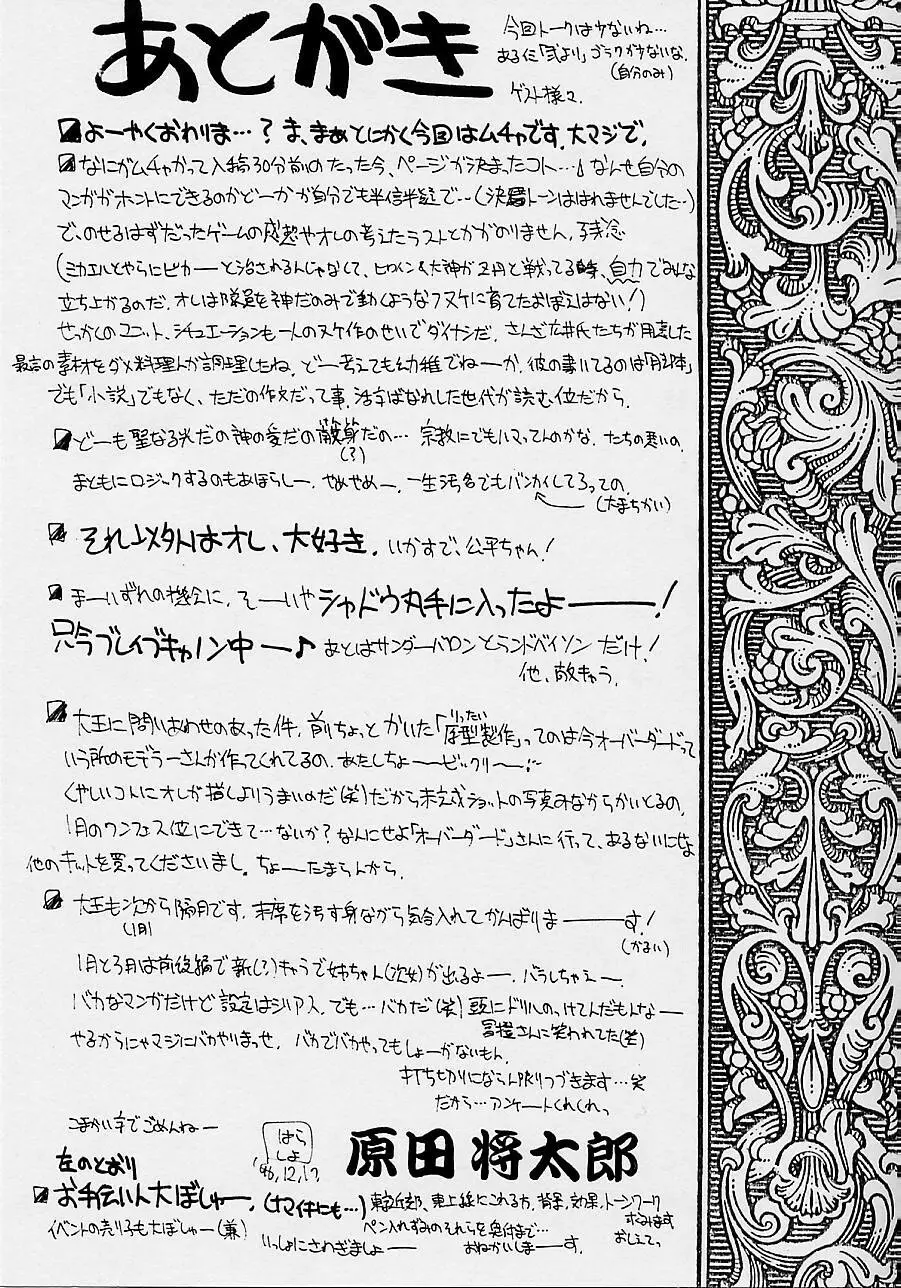 あとがき
今回トークは少ないね…
あるに「弐より」ゴラクが少ないな.
(自分のみ)
ゲスト様々.
よーやくおわりま…？ま、まあとにかく今回はムチャです.大マジで.
なにがムチャかって入稿30分前のたった今、ページが決まったコト…♩なんせ自分の
マンガがホントにできるのかどーかが自分でも半信半疑で…(決局トーンははれませんでした…)
で、のせるはずだったゲームの感想やオレの考えたラストとかがのりません.残念
(ミカエルとやらにピカーーと治されるんじゃなくて、ヒロイン&大神が正月と戦ってる時、自力でみんな
立ち上がるのだ.オレは隊員を神だのみで動くようなフヌケに育てたおぼえはない！)
せっかくのユニット、シチュエーションも一人のヌケ作のせいでダイナシだ.さんざ広井氏たちが用意した
最高の素材をダメ料理人が調理したね.どー考えても幼稚でねーか.彼の書いてるのは「脚本」
でも「小説」でもなく、ただの作文だって事.活字ばなれした世代が読む位だから.
どーも聖なる光だの神の愛だの破邪だの…宗教にでもハマってんのかな.たちの悪いの.
(？)
まともにロジックするのもあほらしー.やめやめー.一生汚名でもバンカイしてろっての.
(大まちがい)
それ以外はオレ、大好き.いかすで、公平ちゃん！
まーいずれの機会に.そーいやシャドウ丸手に入ったよーーー！
只今ブレイブキャノン中ー♪あとはサンダーバロンとランドバイソンだけ！
他、敵きゃう.
大王に問いあわせのあった件.前ちょっとかいた「原型製作」ってのは今オーバーダードって
りったい
いう所のモデラーさんが作ってくれてるの.あたしちょーービックリーー
くやしいコトにオレが描くよりうまいのだ(笑)だから未完成ショットの写真みながらかいとるの.
1月のワンフェス位にできて…ないか？なんにせよ「オーバーダード」さんに行って、あるないにせよ
他のキットを買ってくださいまし.ちょーーたまらんから.
大王も次から隔月です.末席を汚す身ながら気合入れてがんばりまーーーす！
(1月)
(かるい)
1月と3月は前後編で新(？)キャラで姉ちゃん(次女)が出るよーー.バラしちゃえー
バカなマンガだけど設定はシリアス.でも…バカだ(笑)頭にドリルのっけてんだもんなー
冨樫さんに笑われてた(笑)
やるからにゃマジにバカやりまっせ.バカでバカやってもしょーがないもん.
打ち切りにならん限りつづきます…笑
だから…アンケートくれくれっ
こまかい字でごめんねー
はら
しょ
'96.12.17
原田 将太郎
左のとおり
お手伝い人大ぼしゅー.(ナマイキにも…)東京近郊、東上線にこれる方.背景、効果、トーンワーク
できます
おしえてっ
イベントの売り子も大ぼしゅー(兼)
ペン入れずみのそれらを受付まで…
いっしょにさわぎましょーー
おねがいしまーす.